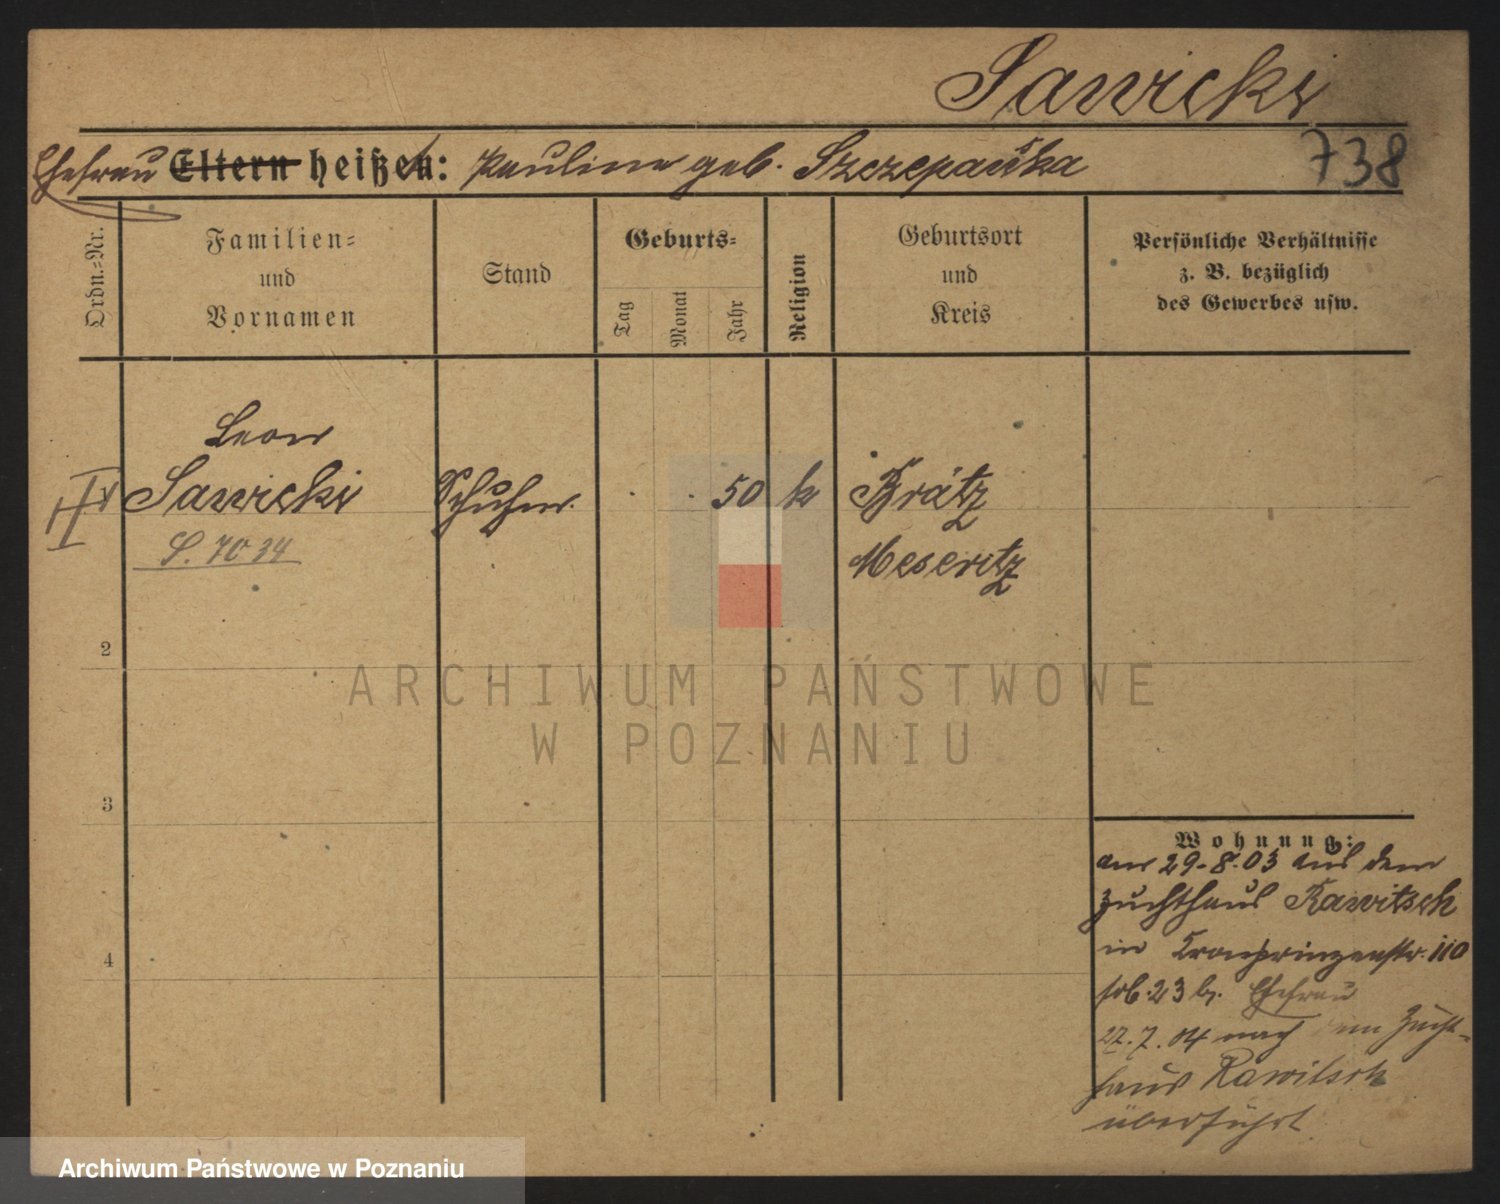 Sawicki
Ehefrau Eltern heißen: Pauline geb. Szczepańska
738
Ordn.-Nr.
Familien-
und
Vornamen
Stand
Geburts-
Tag
Monat
Jahr
Religion
Geburtsort
und
Kreis
Persönliche Verhältnisse
z. B. bezüglich
des Gewerbes usw.
Leon
Sawicki
Schuhm.
50
k
Brätz
Meseritz
S. 7034
2
3
4
Wohnung:
am 29.8.03 aus dem
Zuchthaus Rawitsch
in Kronprinzenstr. 110
23 b. Ehefrau
27.7.04 nach dem Zucht-
haus Rawitsch
überführt
ARCHIWUM PAŃSTWOWE
W POZNANIU
Archiwum Państwowe w Poznaniu